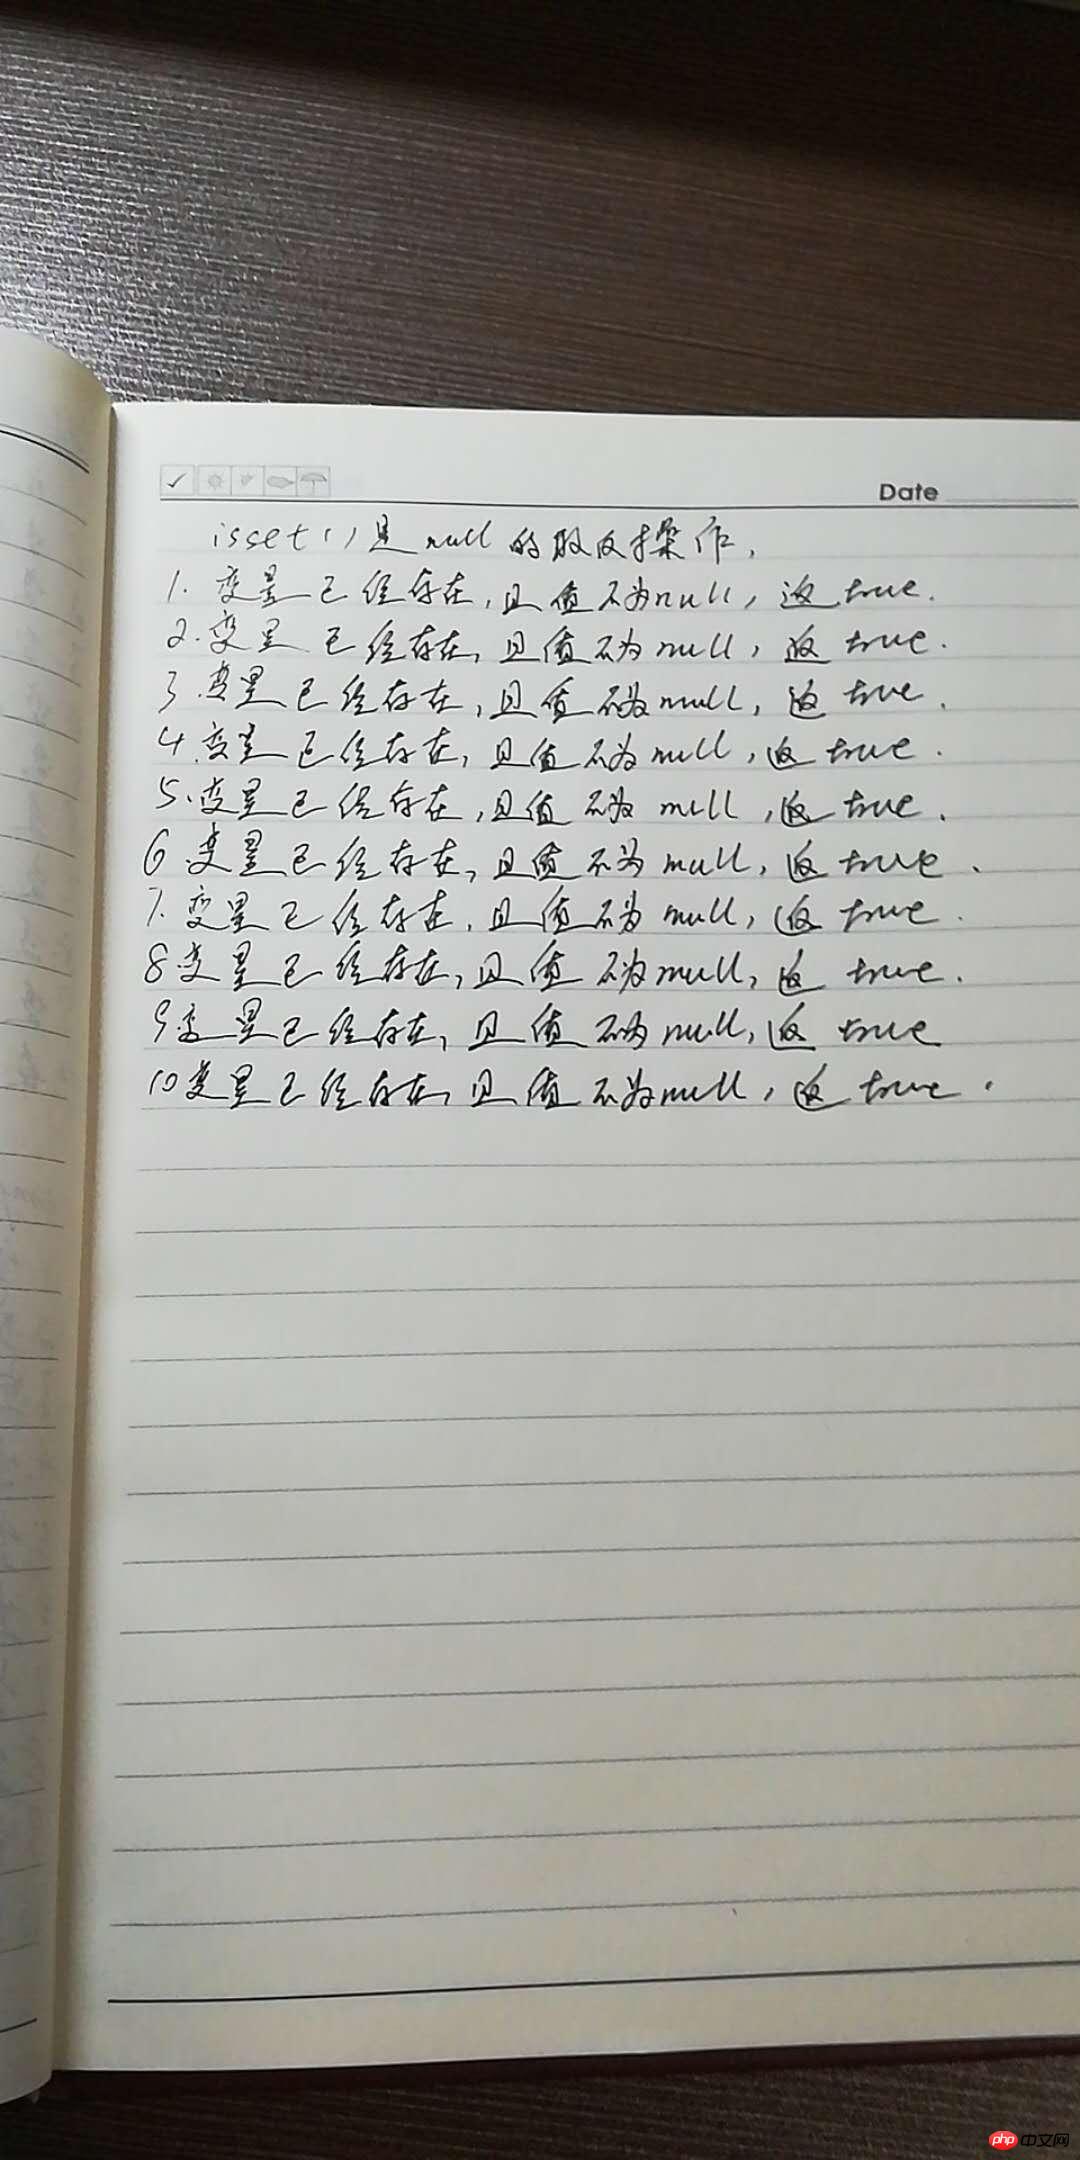 Date
isset()是null的取反操作,
1. 变量已经存在,且值不为null,返true.
2. 变量已经存在,且值不为null,返true.
3. 变量已经存在,且值不为null,返true.
4. 变量已经存在,且值不为null,返true.
5. 变量已经存在,且值不为null,返true.
6. 变量已经存在,且值不为null,返true.
7. 变量已经存在,且值不为null,返true.
8 变量已经存在,且值不为null,返true.
9 变量已经存在,且值不为null,返true
10 变量已经存在,且值不为null,返true.
php 中文网